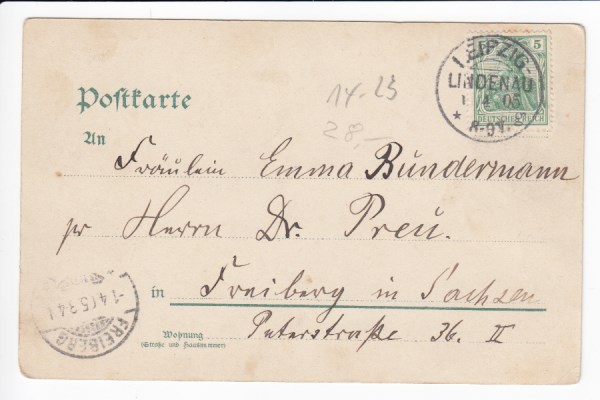 5
LEIPZIG-
LINDENAU
1 4 05
* 8-9V. *
DEUTSCHES REICH
Postkarte
14-23
28,-
An
Fräulein Emma Bundermann
pr Herrn Dr. Preu.
in Freiberg in Sachsen
Wohnung
(Straße und Hausnummer)
Peterstraße 36. II
FREIBERG
1.4.05.